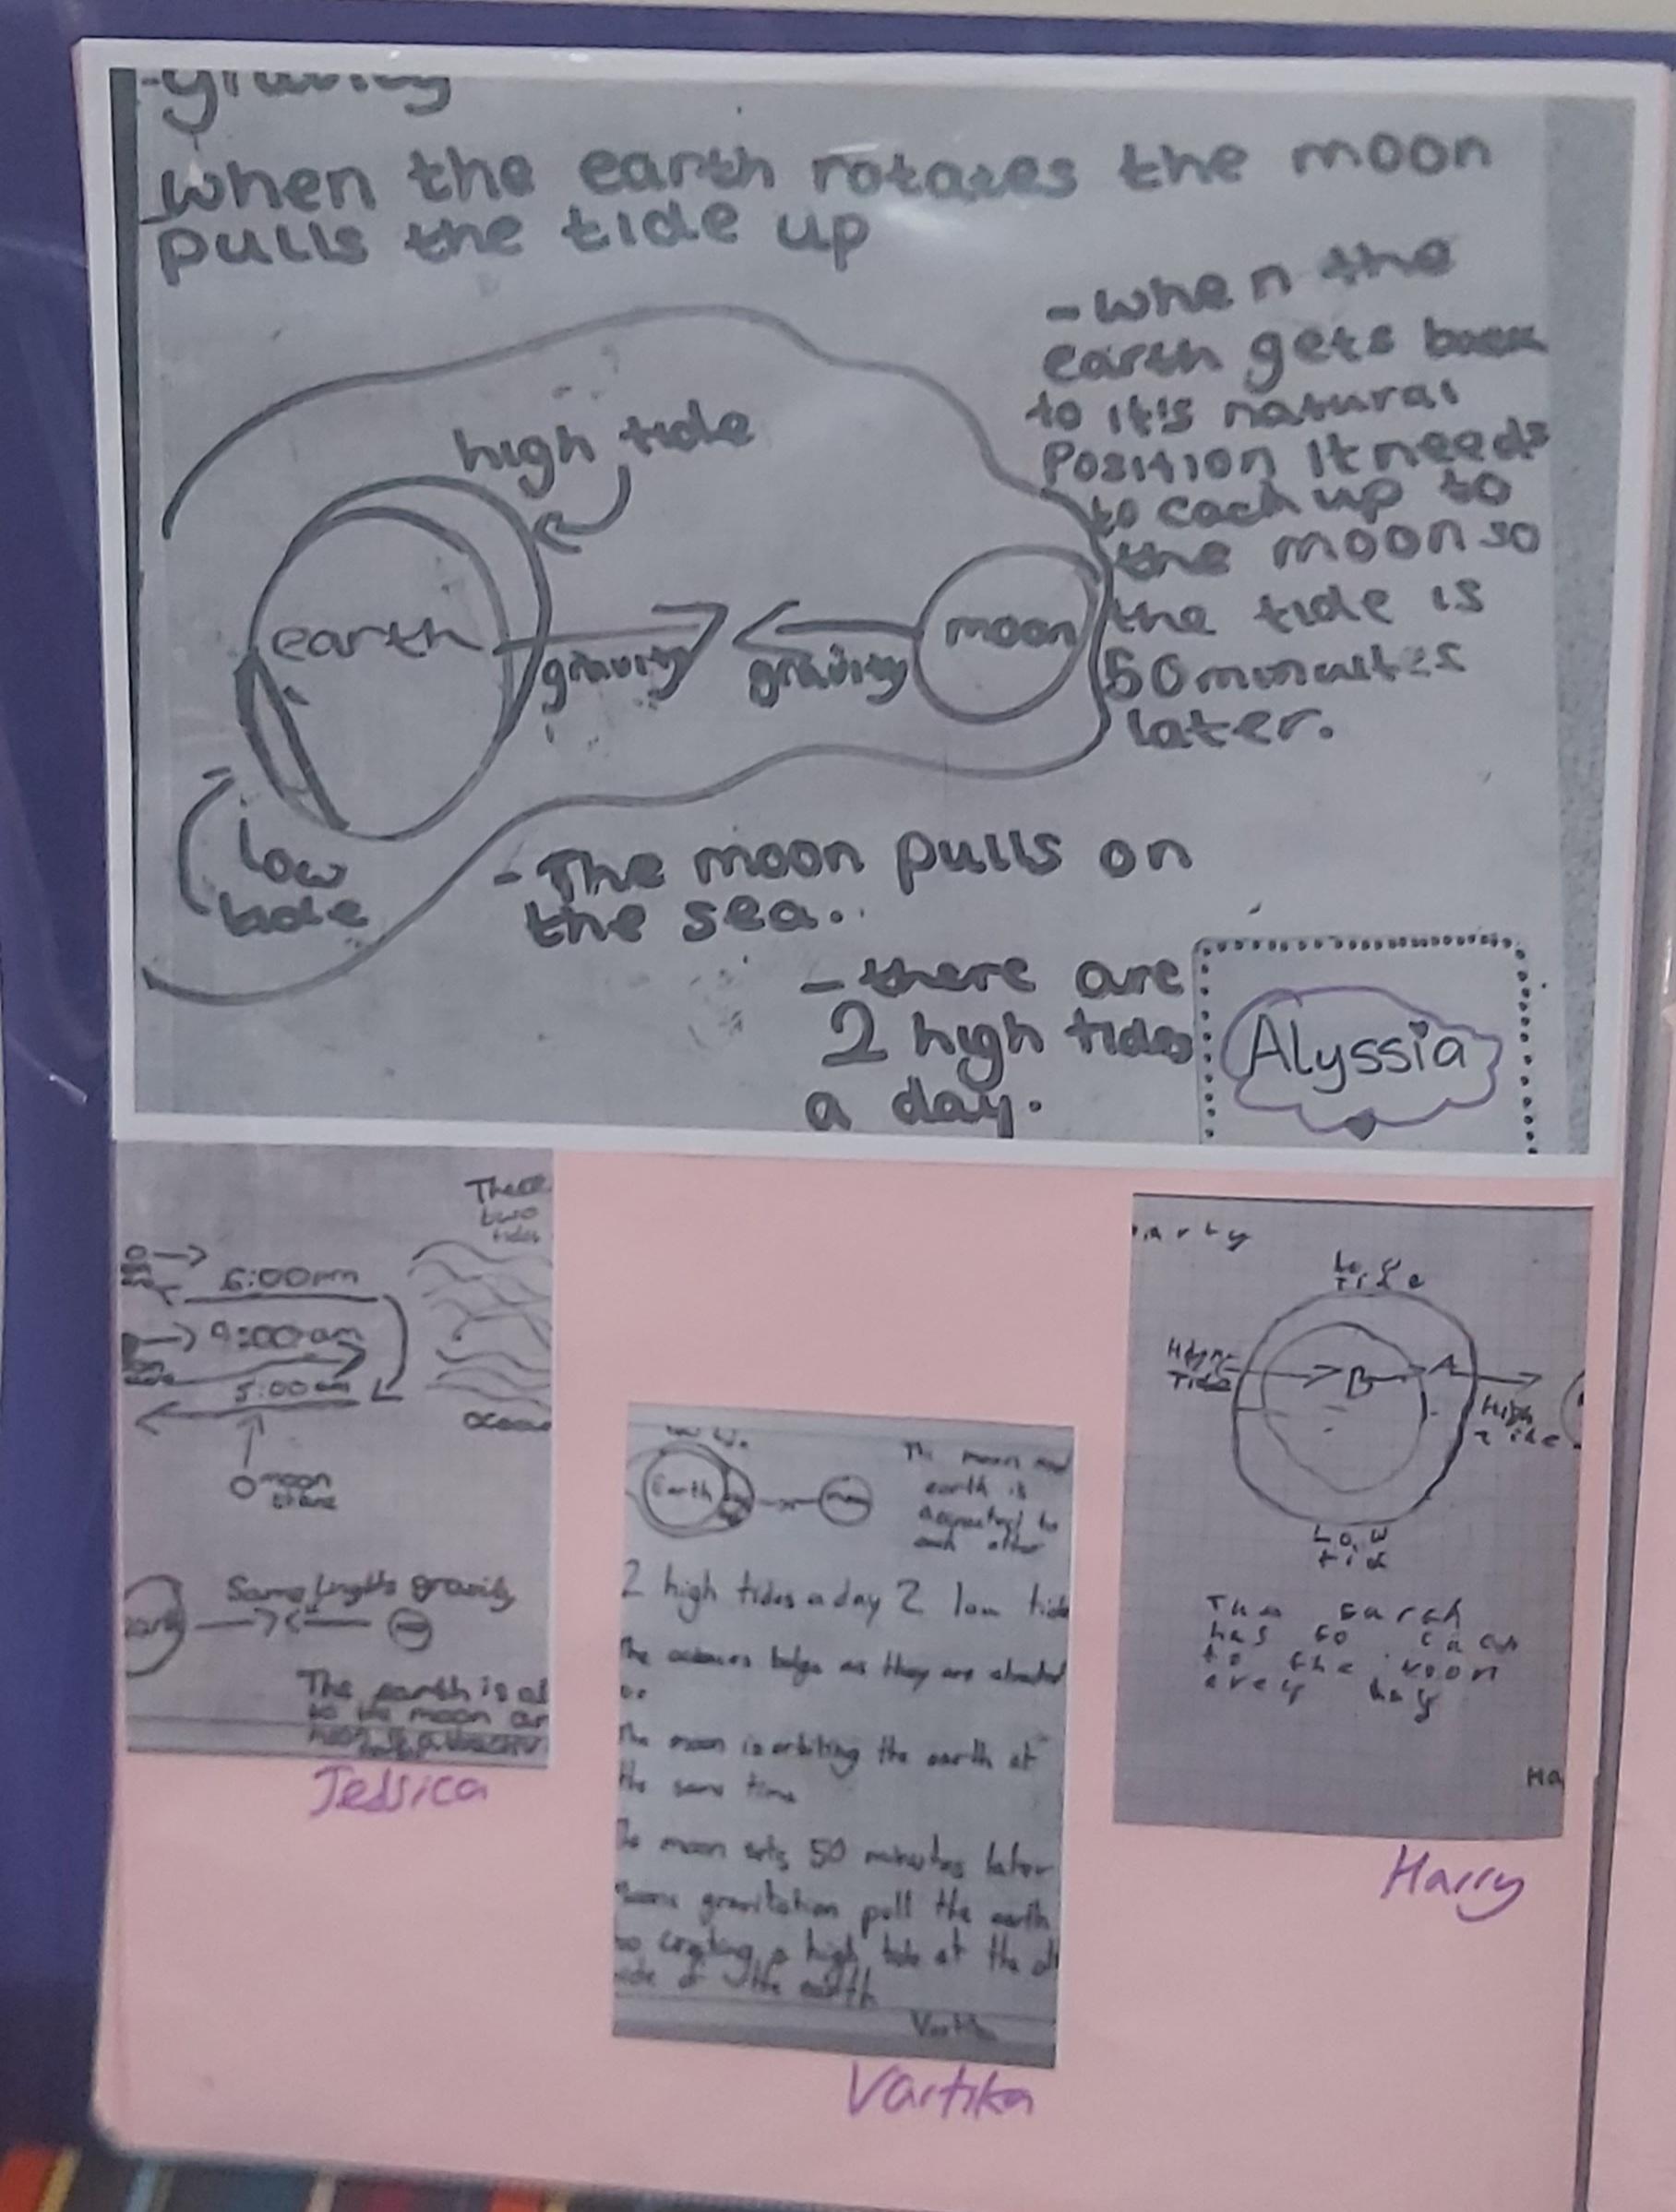 -gravity
when the earth rotates the moon
pulls the tide up
- when the
earth gets back
to it's natural
Position it needs
to cach up to
the moon so
the tide is
50 minutes
later.
high tide
earth
gravity
gravity
moon
low
tide
- The moon pulls on
the sea.
- there are
2 high tides
a day.
Alyssia
There
two
tides
6:00pm
9:00am
5:00am
ocean
moon
Same length gravity
The earth is
to the moon
Jessica
Earth
The moon and
earth is
to
each other
2 high tides a day 2 low tide
The bulge as they are
The moon is orbiting the earth at
the same time
The moon sets 50 minutes later
gravitation pull the earth
creating a high tide at the
side of the earth
Vartika
arty
Tide
High
Tide
B
A
High
Tide
Low
tid
The earth
has to cach
to the moon
every
Ha
Harry